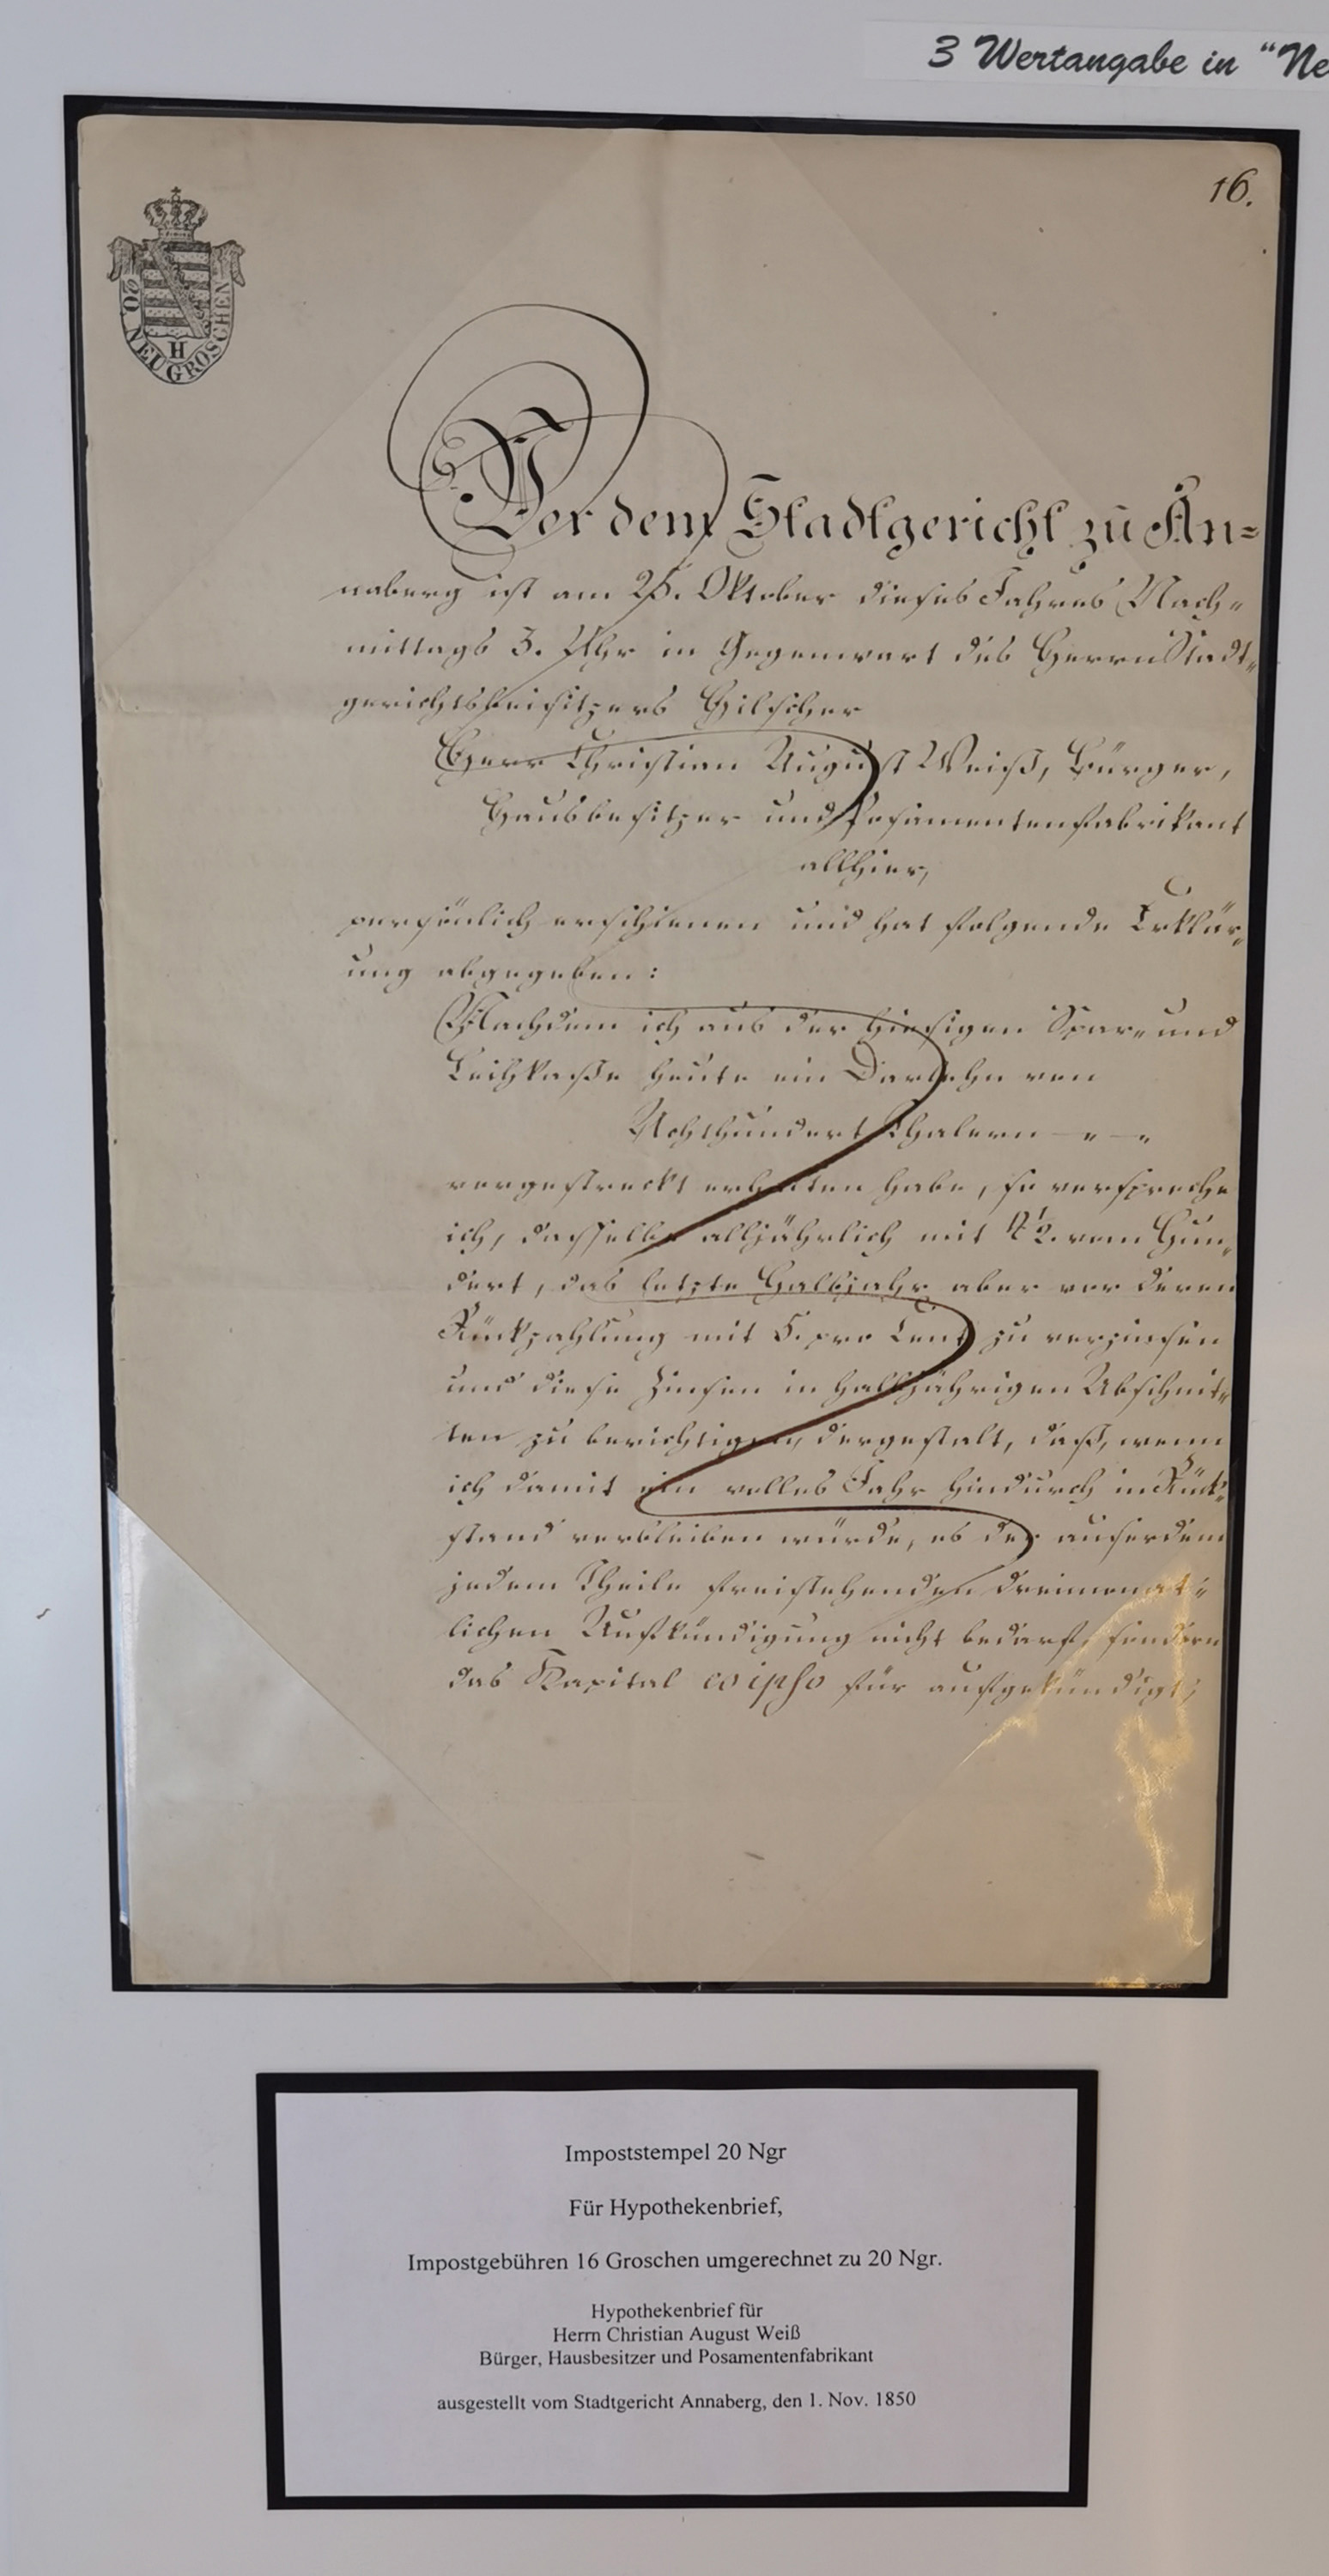 3 Wertangabe in “Ne
16.
20. NEUGROSCHEN
H
Vor dem Stadtgericht zu An=
naberg ist am 25. Oktober dieses Jahres Nach„
mittags 3. Uhr in Gegenwart des Herrn Stadt„
gerichtsbeisitzers Hilscher
Herr Christian August Weiß, Bürger,
Hausbesitzer und Posamentenfabrikant
allhier,
persönlich erschienen und hat folgende Erklär„
ung abgegeben:
Nachdem ich aus der hiesigen Spar„ und
Leihkaße heute ein Darlehn von
Achthundert Thalern — „ — „
vorgestreckt erhalten habe, so verspreche
ich, dasselbe alljährlich mit 4½. vom Hun„
dert, das letzte Halbjahr aber vor deren
Rückzahlung mit 5. pro Cent zu verzinsen
und diese Zinsen in halbjährigen Abschnit„
ten zu berichtigen, dergestalt, daß, wenn
ich damit ein volles Jahr hindurch in Rück„
stand verbleiben würde, es der auserdem
jedem Theile freistehenden dreimonat„
lichen Aufkündigung nicht bedarf, sondern
das Kapital eo ipso für aufgekündigt,
Impoststempel 20 Ngr
Für Hypothekenbrief,
Impostgebühren 16 Groschen umgerechnet zu 20 Ngr.
Hypothekenbrief für
Herrn Christian August Weiß
Bürger, Hausbesitzer und Posamentenfabrikant
ausgestellt vom Stadtgericht Annaberg, den 1. Nov. 1850